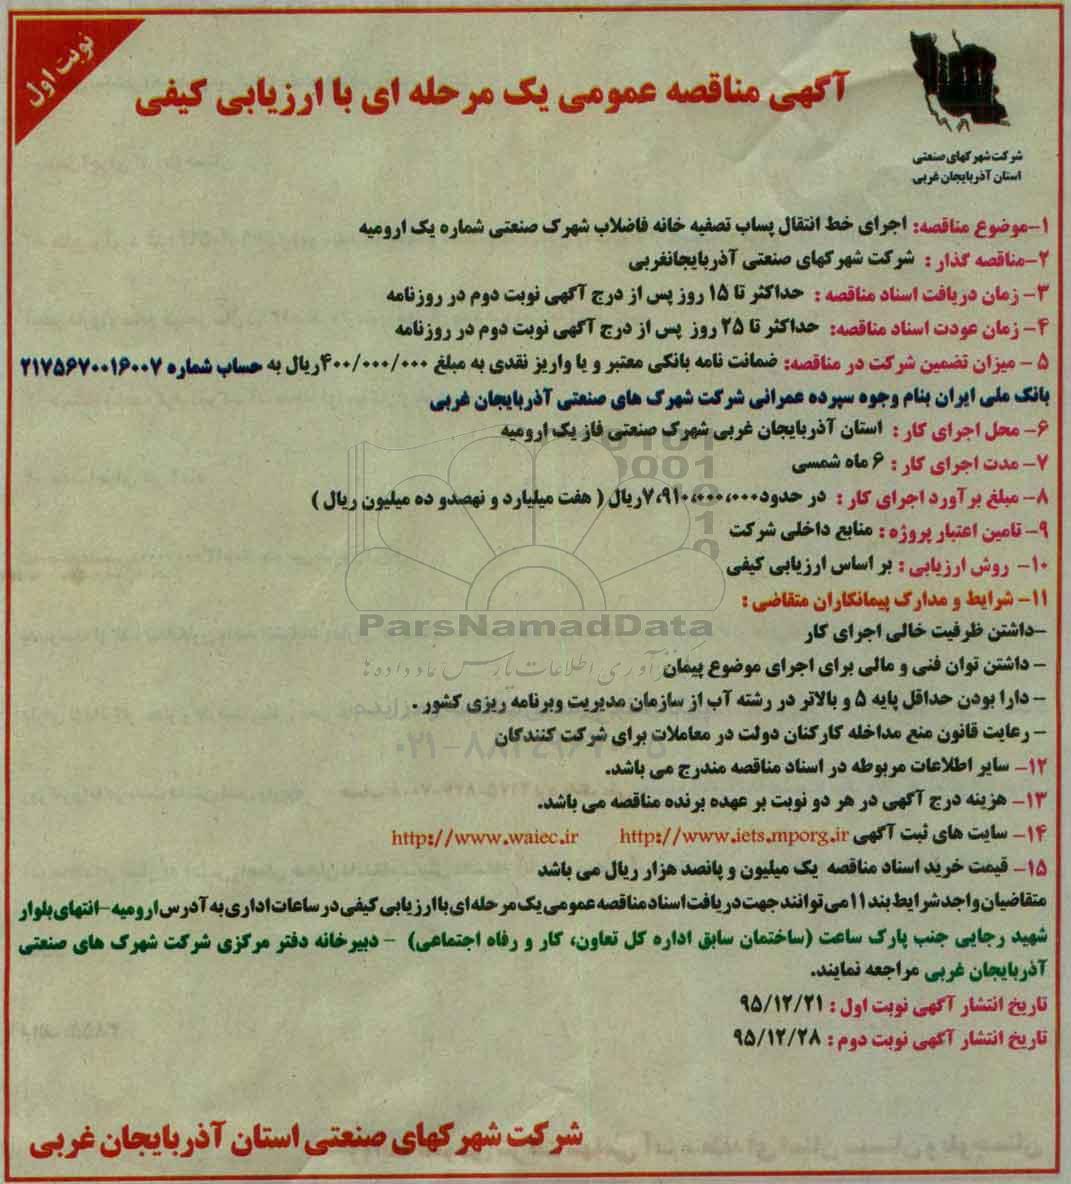 نوبت اول
آگهی مناقصه عمومی یک مرحله ای با ارزیابی کیفی
شرکت شهرکهای صنعتی
استان آذربایجان غربی
۱-موضوع مناقصه: اجرای خط انتقال پساب تصفیه خانه فاضلاب شهرک صنعتی شماره یک ارومیه
۲-مناقصه گذار : شرکت شهرکهای صنعتی آذربایجانغربی
۳- زمان دریافت اسناد مناقصه : حداکثر تا ۱۵ روز پس از درج آگهی نوبت دوم در روزنامه
۴- زمان عودت اسناد مناقصه: حداکثر تا ۲۵ روز پس از درج آگهی نوبت دوم در روزنامه
۵ - میزان تضمین شرکت در مناقصه: ضمانت نامه بانکی معتبر و یا واریز نقدی به مبلغ ۴۰۰/۰۰۰/۰۰۰ریال به حساب شماره ۲۱۷۵۶۷۰۰۱۶۰۰۷
بانک ملی ایران بنام وجوه سپرده عمرانی شرکت شهرک های صنعتی آذربایجان غربی
۶- محل اجرای کار : استان آذربایجان غربی شهرک صنعتی فاز یک ارومیه
۷- مدت اجرای کار : ۶ ماه شمسی
۸- مبلغ برآورد اجرای کار : در حدود۷،۹۱۰،۰۰۰،۰۰۰ریال ( هفت میلیارد و نهصدو ده میلیون ریال )
۹- تامین اعتبار پروژه : منابع داخلی شرکت
۱۰- روش ارزیابی : بر اساس ارزیابی کیفی
۱۱- شرایط و مدارک پیمانکاران متقاضی :
ParsNamadData
-داشتن ظرفیت خالی اجرای کار
- داشتن توان فنی و مالی برای اجرای موضوع پیمان
- دارا بودن حداقل پایه ۵ و بالاتر در رشته آب از سازمان مدیریت وبرنامه ریزی کشور .
- رعایت قانون منع مداخله کارکنان دولت در معاملات برای شرکت کنندگان
۱۲- سایر اطلاعات مربوطه در اسناد مناقصه مندرج می باشد.
۱۳- هزینه درج آگهی در هر دو نوبت بر عهده برنده مناقصه می باشد.
۱۴- سایت های ثبت آگهی http://www.iets.mporg.ir http://www.waiec.ir
۱۵- قیمت خرید اسناد مناقصه یک میلیون و پانصد هزار ریال می باشد
متقاضیان واجد شرایط بند ۱۱ می توانند جهت دریافت اسناد مناقصه عمومی یک مرحله ای با ارزیابی کیفی در ساعات اداری به آدرس ارومیه-انتهای بلوار
شهید رجایی جنب پارک ساعت (ساختمان سابق اداره کل تعاون، کار و رفاه اجتماعی) - دبیرخانه دفتر مرکزی شرکت شهرک های صنعتی
آذربایجان غربی مراجعه نمایند.
تاریخ انتشار آگهی نوبت اول : ۹۵/۱۲/۲۱
تاریخ انتشار آگهی نوبت دوم : ۹۵/۱۲/۲۸
شرکت شهرکهای صنعتی استان آذربایجان غربی